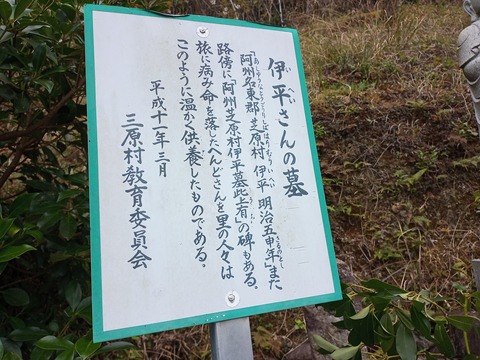 伊平さんの墓
「阿州名東郡芝原村 伊平 明治五申年」また
路傍に「阿州芝原村伊平墓此上有」の碑もある。
旅に病み命を落したへんどさんを里の人々は
このように温かく供養したものである。
平成十一年三月
三原村教育委員会